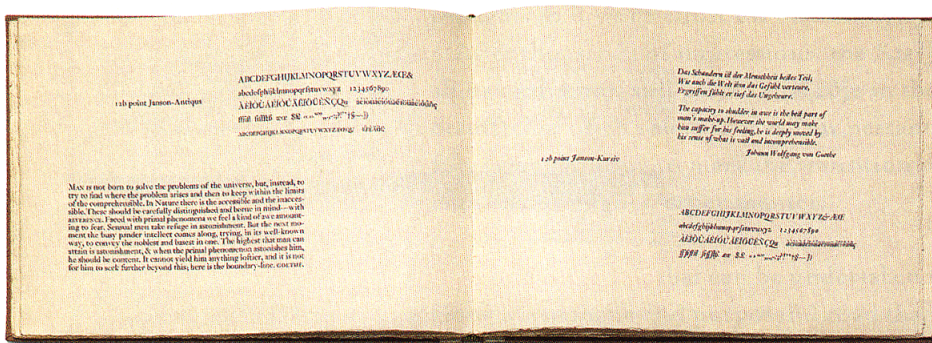 ABCDEFGHIJKLMNOPQRSTUVWXYZÆŒ&
abcdefghijklmnopqrstuvwxyz 1234567890
12b point Janson-Antiqua
MAN is not born to solve the problems of the universe, but, instead, to
try to find where the problem arises and then to keep within the limits
of the comprehensible. In Nature there is the accessible and the inacces-
sible. These should be carefully distinguished and borne in mind—with
REVERENCE. Faced with primal phenomena we feel a kind of awe amount-
ing to fear. Sensual men take refuge in astonishment. But the next mo-
ment the busy pander intellect comes along, trying, in its well-known
way, to convey the noblest and basest in one. The highest that man can
attain is astonishment, & when the primal phenomenon astonishes him,
he should be content. It cannot yield him anything loftier, and it is not
for him to seek further beyond this; here is the boundary-line. GOETHE.
Das Schaudern ist der Menschheit bestes Teil;
Wie auch die Welt ihm das Gefühl verteure,
Ergriffen fühlt er tief das Ungeheure.
The capacity to shudder in awe is the best part of
man's make-up. However the world may make
him suffer for his feeling, he is deeply moved by
his sense of what is vast and incomprehensible.
Johann Wolfgang von Goethe
12b point Janson-Kursiv
ABCDEFGHIJKLMNOPQRSTUVWXYZ& ÆŒ
abcdefghijklmnopqrstuvwxyz 1234567890